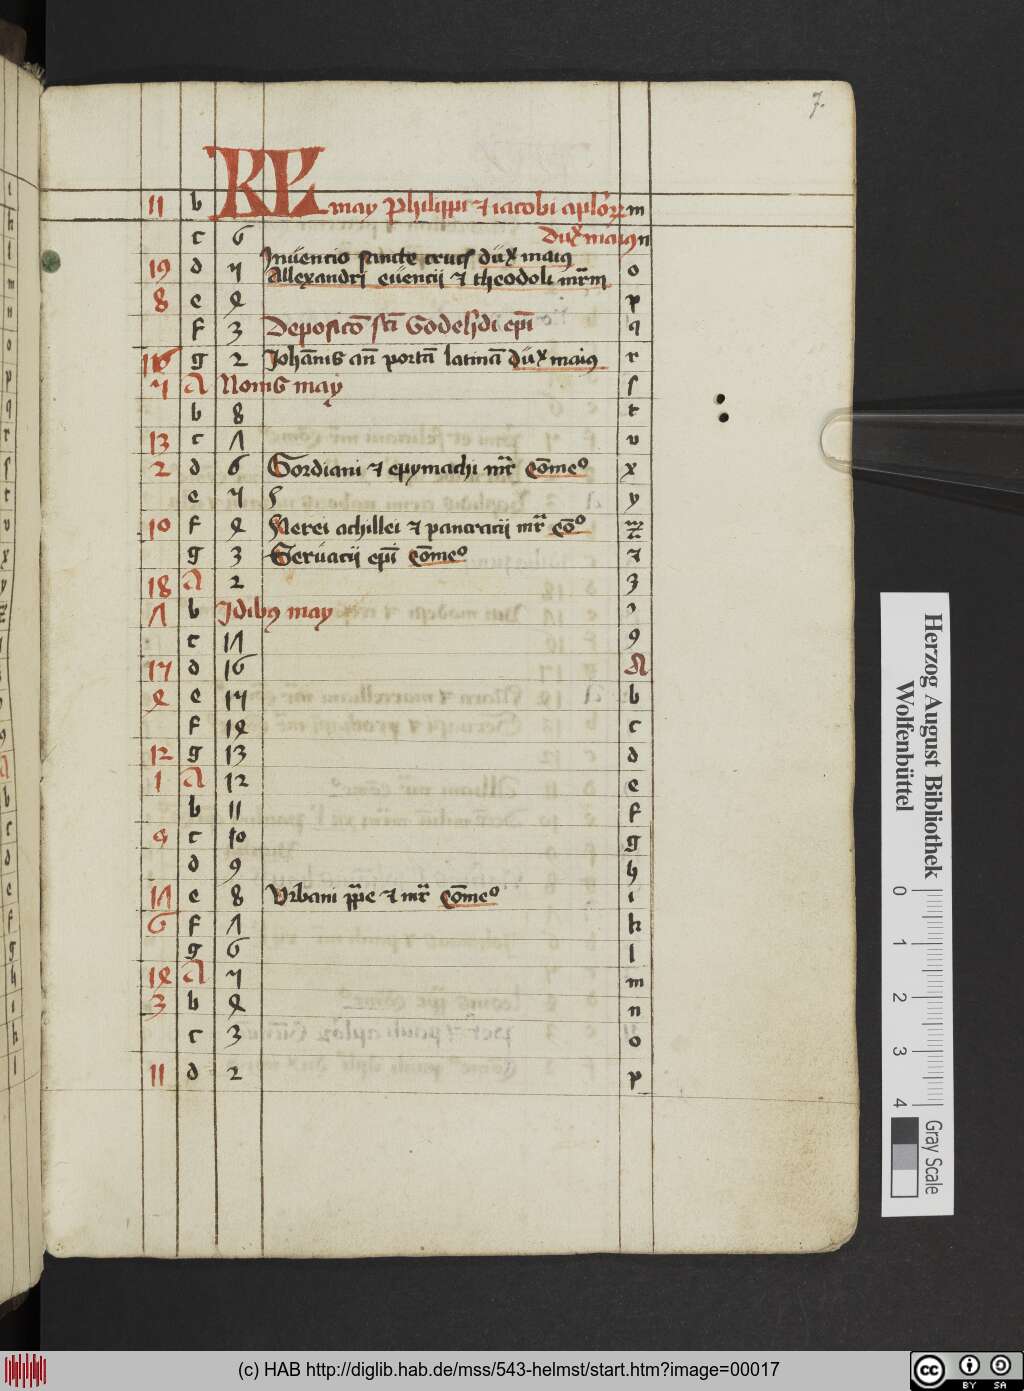 7.
11 b KL may Philippi ⁊ iacobi aploꝝ m
c 6 dux maiꝰ n
Inuencio sancte crucis dux maiꝰ
19 d 5 Allexandri euencii ⁊ theodoli mr̄m o
8 e 4 p
f 3 Deposicō scī Godehardi ep̄i q
16 g 2 Johānis an̄ portā latinā dux maiꝰ r
5 A Nonis may ſ
b 8 t
13 c 7 v
2 d 6 Gordiani ⁊ epymachi mr̄ cōmeo x
e 5 y
10 f 4 Nerei achillei ⁊ pancracii mr̄ cōo z
g 3 Seruacii ep̄i cōmeo ⁊
18 A 2 3
7 b Idibꝰ may ꝰ
c 17 9
15 d 16 A
4 e 15 b
f 14 c
12 g 13 d
1 A 12 e
b 11 f
9 c 10 g
d 9 h
17 e 8 Vrbani pp̄e ⁊ mr̄ cōmeo i
6 f 7 k
g 6 l
14 A 5 m
3 b 4 n
c 3 o
11 d 2 p
Herzog August Bibliothek
Wolfenbüttel
0 1 2 3 4
Gray Scale
(c) HAB http://diglib.hab.de/mss/543-helmst/start.htm?image=00017
cc BY SA